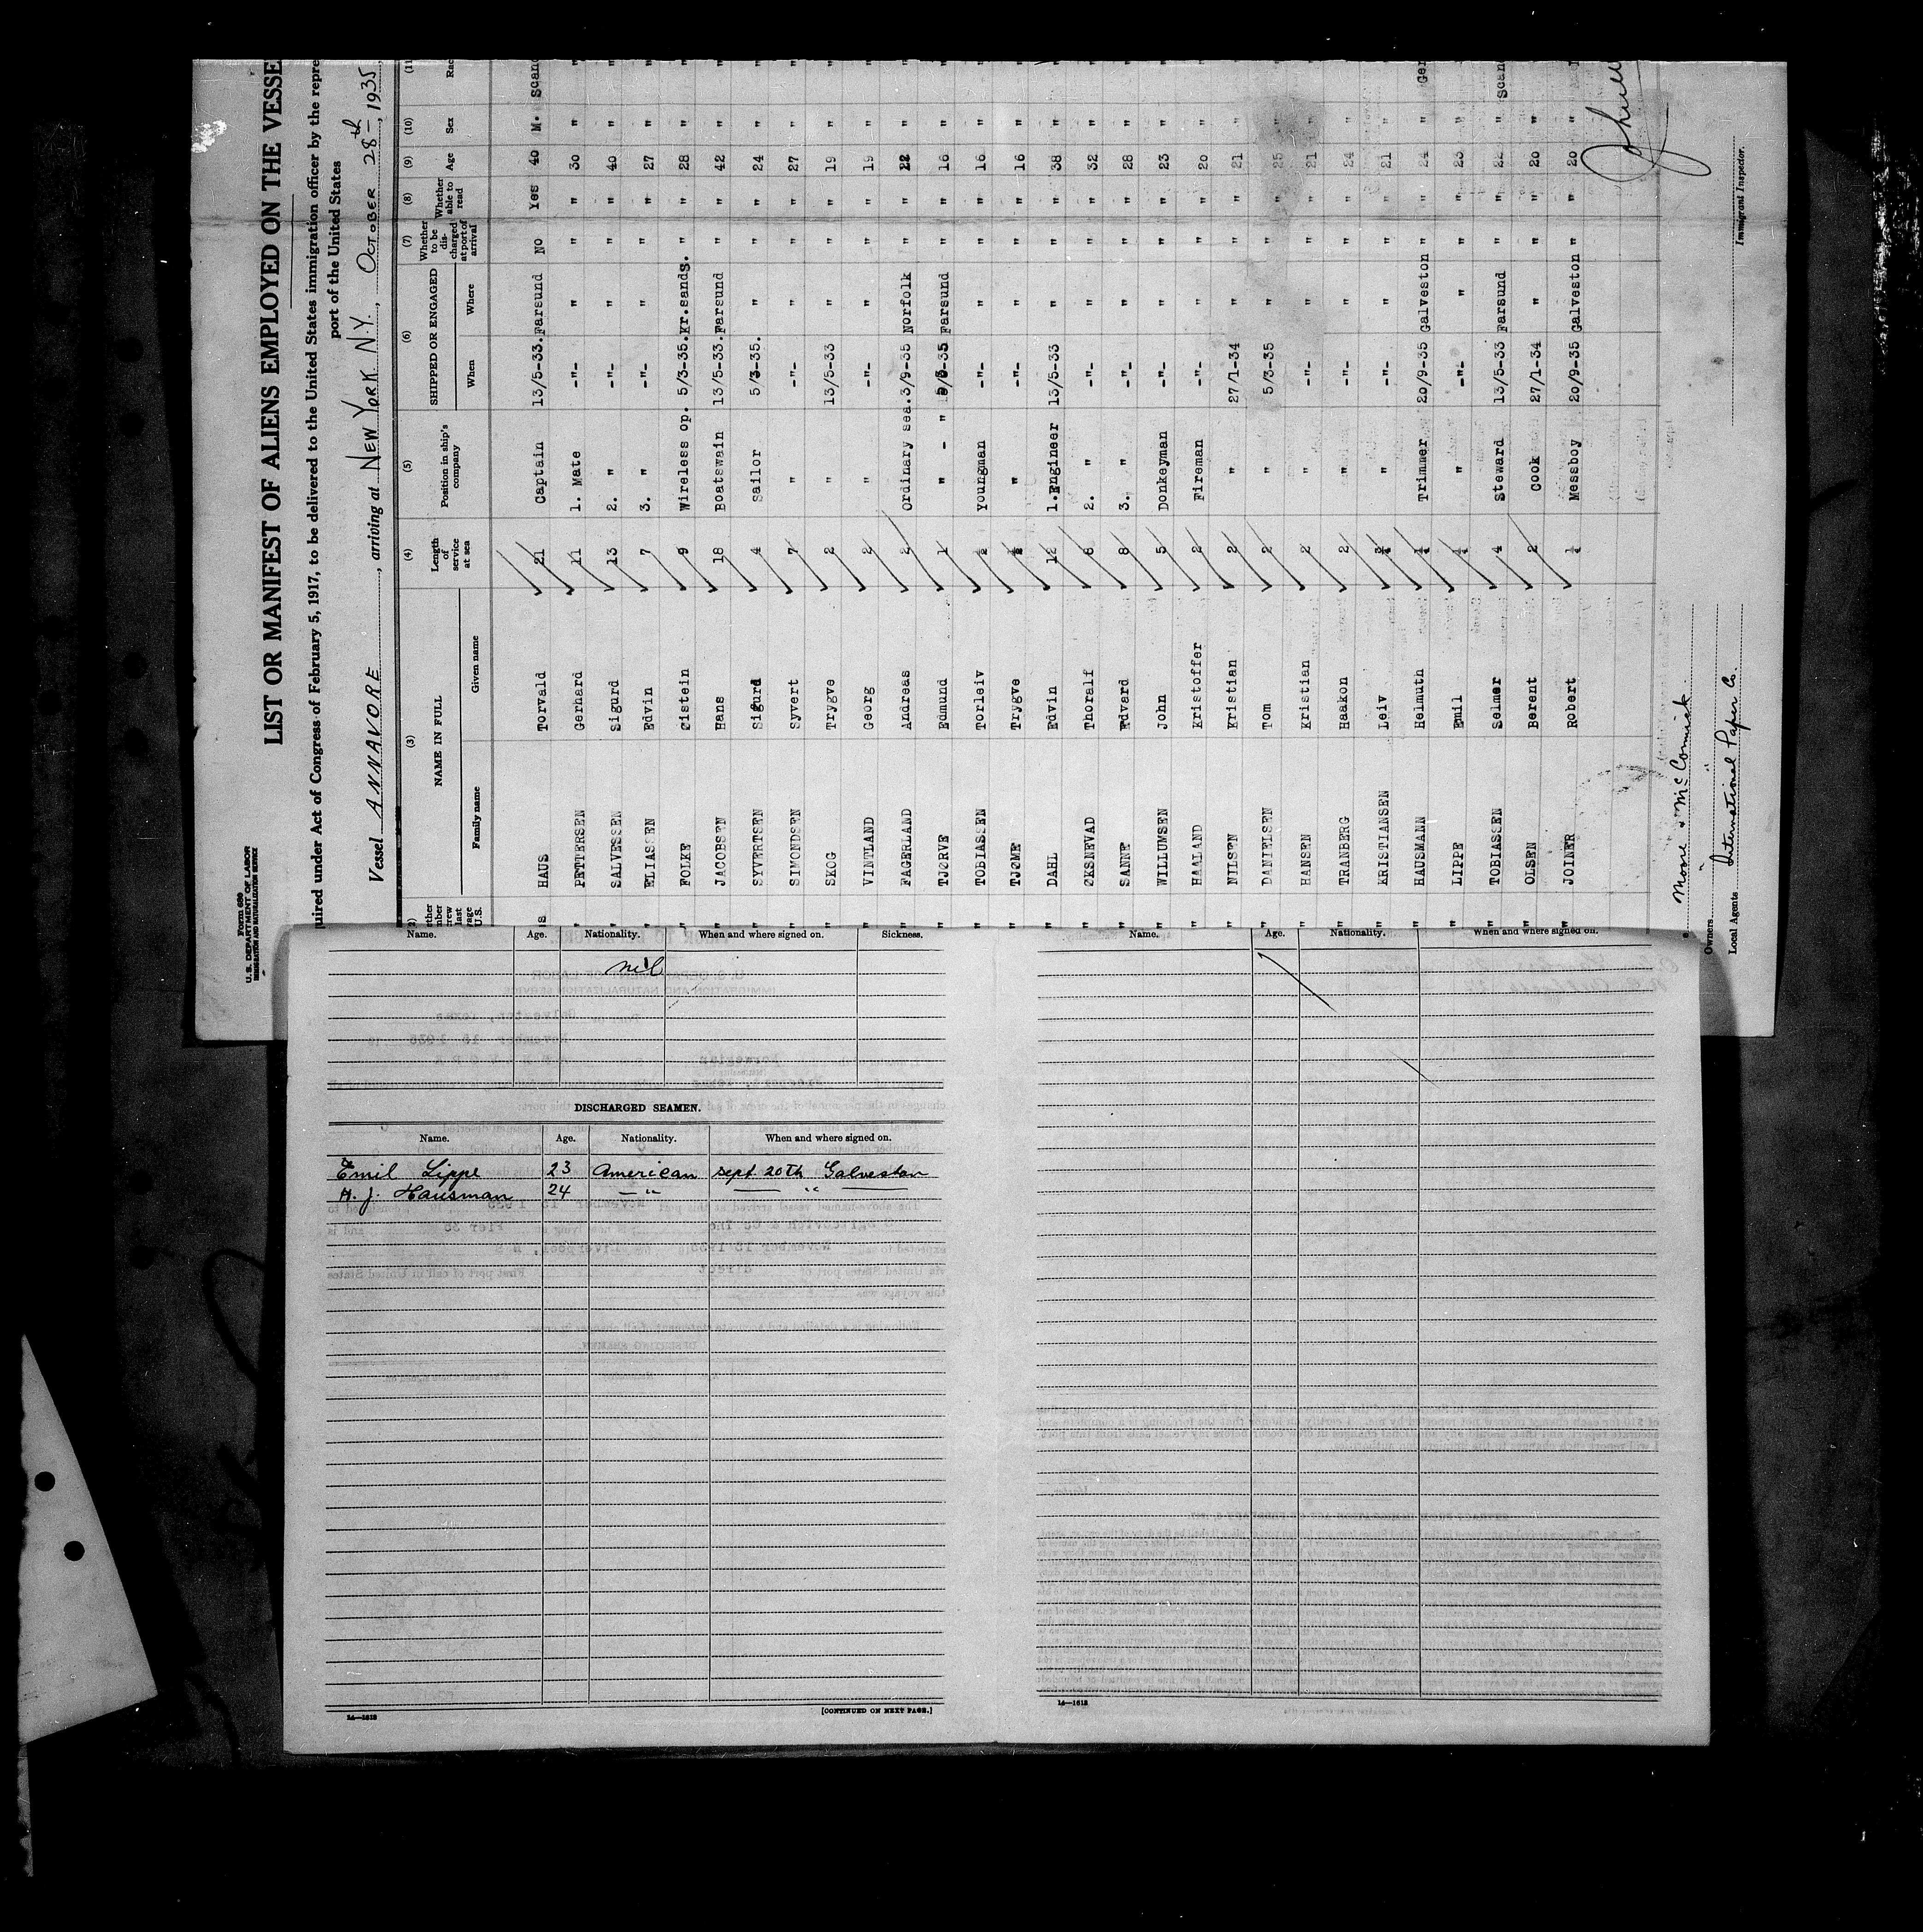 Form 680
U.S. DEPARTMENT OF LABOR
IMMIGRATION AND NATURALIZATION SERVICE
LIST OR MANIFEST OF ALIENS EMPLOYED ON THE VESSE
quired under Act of Congress of February 5, 1917, to be delivered to the United States immigration officer by the repre
port of the United States
Vessel ANNAVORE, arriving at NEW YORK N.Y., OCTOBER 28th, 1935
(3) (4) (5) (6) (7) (8) (9) (10) (11
NAME IN FULL Length of service at sea Position in ship's company SHIPPED OR ENGAGED Whether to be discharged at port of arrival Whether able to read Age Sex Rac
Family name Given name When Where
HAUS Torvald 21 Captain 13/5-33. Farsund No Yes 40 M. Scand
" PETTERSEN Gerhard 11 1. Mate -"- " " " 30 " "
" SALVESSEN Sigurd 13 2. " -"- " " " 40 " "
" ELIASSEN Edvin 7 3. " -"- " " " 27 " "
" FOLKE Øistein 9 Wireless op. 5/3-35. Kr.sands. " " 28 " "
" JACOBSEN Hans 18 Boatswain 13/5-33. Farsund " " 42 " "
" SYVERTSEN Sigurd 4 Sailor 5/3-35. " " " 24 " "
" SIMONDSEN Syvert 7 " -"- " " " 27 " "
" SKOG Trygve 2 " 13/5-33 " " " 19 " "
" VINTLAND Georg 2 " -"- " " " 19 " "
" FAGERLAND Andreas 2 Ordinary sea. 3/9-35 Norfolk " " 22 " "
" TJØRVE Edmund 1 " - " 5/3-35 Farsund " " 16 " "
" TOBIASSEN Torleiv ½ Youngman -"- " " " 16 " "
" TJØME Trygve ½ " -"- " " " 16 " "
" DAHL Edvin 12 1. Engineer 13/5-33 " " " 38 " "
" ØKSNEVAD Thoralf 6 2. " -"- " " " 32 " "
" SANNE Edvard 8 3. " -"- " " " 28 " "
" WILLUMSEN John 5 Donkeyman -"- " " " 23 " "
" HAALAND Kristoffer 2 Fireman -"- " " " 20 " "
" NILSEN Kristian 2 " 27/1-34 " " " 21 " "
" DANIELSEN Tom 2 " 5/3-35 " " " 25 " "
" HANSEN Kristian 2 " -"- " " " 21 " "
" TRANBERG Haakon 2 " -"- " " " 24 " "
" KRISTIANSEN Leiv " -"- " " " 21 " "
" HAUSMANN Helmuth Trimmer 20/9-35 Galveston " " 24 " Ger
" LIPPE Emil " -"- " " " 23 " "
" TOBIASSEN Selmer 4 Steward 13/5-33 Farsund " " 22 " Scand
" OLSEN Berent 2 Cook 27/1-34 " " " 20 " "
" JOINER Robert Messboy 20/9-35 Galveston " " 20 "
Moore & McCormick
Owners "
Local Agents International Paper Co.
Immigrant Inspector.
Name. Age. Nationality. When and where signed on. Sickness.
nil
DISCHARGED SEAMEN.
Name. Age. Nationality. When and where signed on.
Emil Lippe 23 American sept 20th Galveston
H. J. Hausman 24 — " — "
14—1613
[CONTINUED ON NEXT PAGE.]
Name. Age. Nationality. When and where signed on.
14—1613